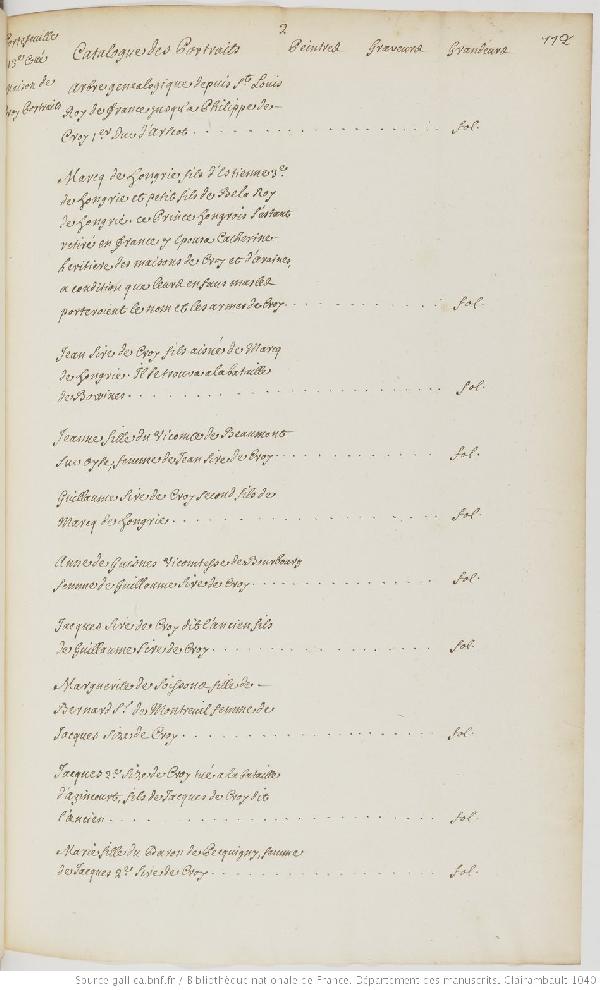 2
112
Portefeuille
13e Cotté
maison de
Croy Portraits
Catalogue des Portraits Peintres Graveurs Grandeurs
Arbre genealogique depuis St. Louis
Roy de france jusqu'a Philippe de
Croy 1er Duc d'Arscot . . . fol.
Marcq de hongrie fils d'Estienne 3e
de hongrie et petit fils de Bela Roy
de hongrie. ce Prince hongrois s'estant
retiré en france y epousa Catherine
heritiere des maisons de Croy et d'araines,
a condition que leurs enfans masles
porteroient le nom et les armes de Croy . . . fol.
Jean Sire de Croy fils aisné de Marcq
de hongrie. Il se trouva a la bataille
de Bovines . . . fol.
Jeanne fille du Vicomte de Beaumont
sur Oyse, femme de Jean Sire de Croy . . . fol.
Guillaume Sire de Croy second fils de
Marcq de hongrie . . . fol.
Anne de Guisnes Vicomtesse de Bourbourg
femme de Guillaume Sire de Croy . . . fol.
Jacques Sire de Croy dit l'ancien fils
de Guillaume Sire de Croy . . . fol.
Marguerite de Soissons fille de
Bernard Sr. de Montreuil femme de
Jacques Sire de Croy . . . fol.
Jacques 2e Sire de Croy tué a la bataille
d'azincourt, fils de Jacques de Croy dit
l'ancien . . . fol.
Marie fille du Baron de Pecquigny, femme
de Jacques 2e Sire de Croy . . . fol.
Source gallica.bnf.fr / Bibliothèque nationale de France. Département des manuscrits. Clairambault 1040